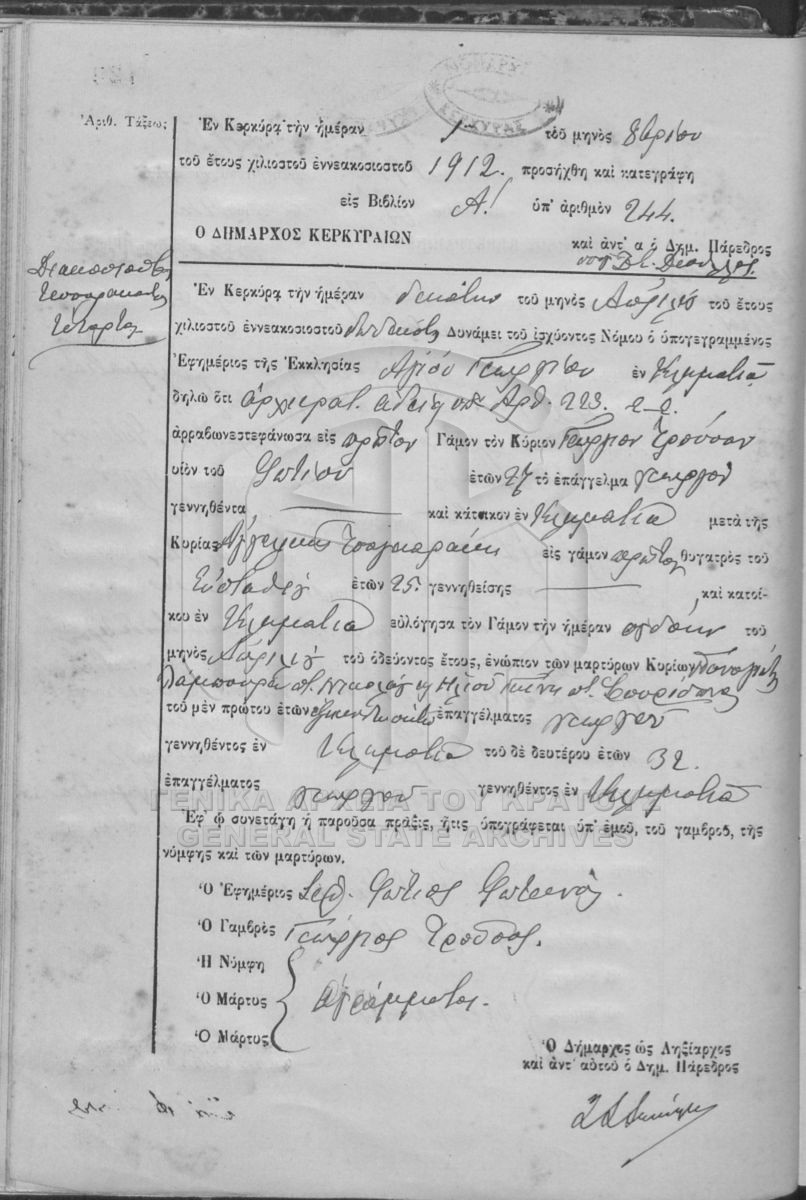 Ἀριθ. Τάξεως
ΚΕΡΚΥΡΑΣ
Ἐν Κερκύρᾳ τὴν ἡμέραν 1 τοῦ μηνὸς 8βρίου
τοῦ ἔτους χιλιοστοῦ ἐννεακοσιοστοῦ 1912. προσήχθη καὶ κατεγράφη
εἰς Βιβλίον Α! ὑπ' ἀριθμὸν 244.
Ο ΔΗΜΑΡΧΟΣ ΚΕΡΚΥΡΑΙΩΝ
καὶ ἀντ' α ὁ Δημ. Πάρεδρος
Διακόσια
Τεσσαράκοντα
Τέσσαρα
Ἐν Κερκύρᾳ τὴν ἡμέραν δεκάτην τοῦ μηνὸς Ἀπριλίου τοῦ ἔτους
χιλιοστοῦ ἐννεακοσιοστοῦ δωδεκάτου Δυνάμει τοῦ ἰσχύοντος Νόμου ὁ ὑπογεγραμμένος
Ἐφημέριος τῆς Ἐκκλησίας Ἁγίου Γεωργίου ἐν Κληματιᾷ
δηλῶ ὅτι ἀρχιερατ. ἀδείᾳ ὑπ' Ἀρθ. 223.
ἀρραβωνεστεφάνωσα εἰς πρῶτον Γάμον τὸν Κύριον Γεώργιον Τροῦσαν
υἱὸν τοῦ Φωτίου ἐτῶν 27 τὸ ἐπάγγελμα γεωργὸν
γεννηθέντα καὶ κάτοικον ἐν Κληματιᾷ μετὰ τῆς
Κυρίας Ἀγγελικῆς Τσαγκαράκη εἰς γάμον πρῶτον θυγατρὸς τοῦ
Εὐσταθίου ἐτῶν 25. γεννηθείσης καὶ κατοί-
κου ἐν Κληματιᾷ εὐλόγησα τὸν Γάμον τὴν ἡμέραν ὀγδόην τοῦ
μηνὸς Ἀπριλίου τοῦ ὁδεύοντος ἔτους, ἐνώπιον τῶν μαρτύρων Κυρίων Παναγιώτη
Λαμπούρα π. Νικολάου κ Ἠλιοῦ Γκίνη π. Σπυρίδωνος
τοῦ μὲν πρώτου ἐτῶν ἐπαγγέλματος γεωργοῦ
γεννηθέντος ἐν Κληματιᾷ τοῦ δὲ δευτέρου ἐτῶν 32.
ἐπαγγέλματος γεωργοῦ γεννηθέντος ἐν Κληματιᾷ
ΓΕΝΙΚΑ ΑΡΧΕΙΑ ΤΟΥ ΚΡΑΤΟΥΣ
GENERAL STATE ARCHIVES
Ἐφ' ᾧ συνετάγη ἡ παροῦσα πρᾶξις, ἥτις ὑπογράφεται ὑπ' ἐμοῦ, τοῦ γαμβροῦ, τῆς
νύμφης καὶ τῶν μαρτύρων.
Ὁ Ἐφημέριος Ἱερ. Φώτιος
Ὁ Γαμβρὸς Γεώργιος Τροῦσας.
Ἡ Νύμφη
Ὁ Μάρτυς ἀγράμματοι.
Ὁ Μάρτυς
Ὁ Δήμαρχος ὡς Ληξίαρχος
καὶ ἀντ' αὐτοῦ ὁ Δημ. Πάρεδρος